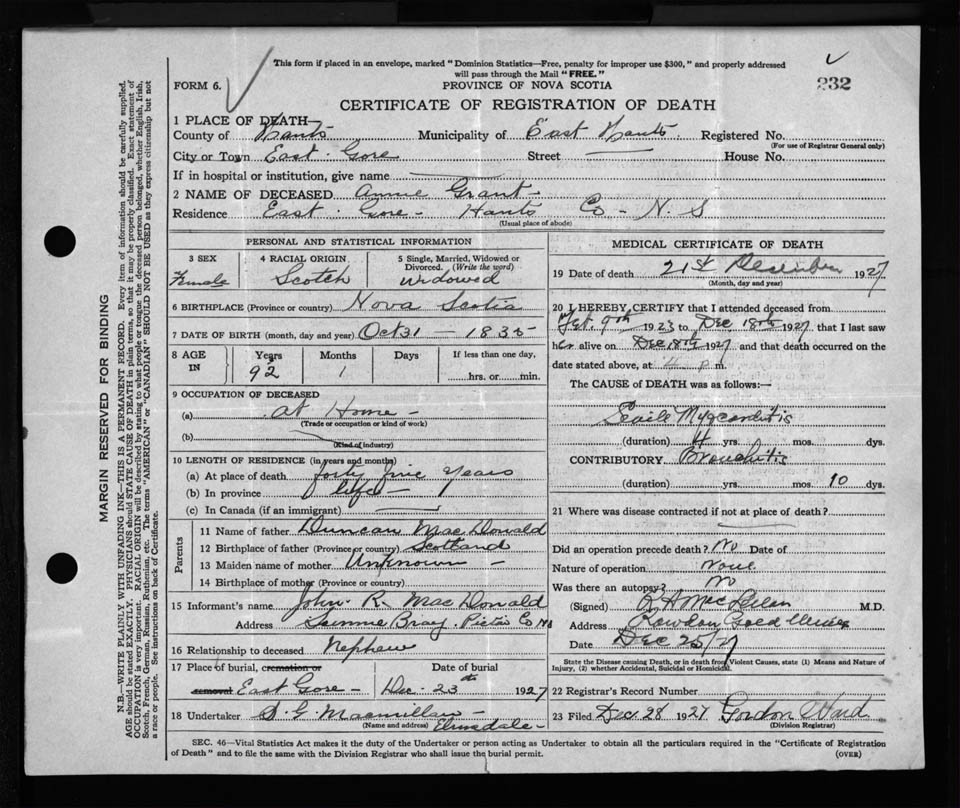 This form if placed in an envelope, marked "Dominion Statistics—Free, penalty for improper use $300," and properly addressed
will pass through the Mail "FREE."
232
FORM 6.
PROVINCE OF NOVA SCOTIA
CERTIFICATE OF REGISTRATION OF DEATH
1 PLACE OF DEATH—
County of Hants Municipality of East Hants. Registered No.
(For use of Registrar General only)
City or Town East Gore Street — House No.
If in hospital or institution, give name
2 NAME OF DECEASED Annie Grant—
Residence East Gore— Hants Co— N. S
(Usual place of abode)
PERSONAL AND STATISTICAL INFORMATION
3 SEX Female
4 RACIAL ORIGIN Scotch
5 Single, Married, Widowed or Divorced. (Write the word) Widowed
6 BIRTHPLACE (Province or country) Nova Scotia
7 DATE OF BIRTH (month, day and year) Oct 31 — 1835
8 AGE IN Years Months Days If less than one day,
92 1 hrs. or min.
9 OCCUPATION OF DECEASED
(a) at Home—
(Trade or occupation or kind of work)
(b)
(Kind of industry)
10 LENGTH OF RESIDENCE (in years and months)
(a) At place of death forty five years
(b) In province life—
(c) In Canada (if an immigrant)
Parents
11 Name of father Duncan MacDonald
12 Birthplace of father (Province or country) Scotland
13 Maiden name of mother Unknown—
14 Birthplace of mother (Province or country)
15 Informant's name John R. MacDonald
Address Pictou Co NS
16 Relationship to deceased Nephew
17 Place of burial, cremation or removal East Gore—
Date of burial Dec. 23rd 1927
18 Undertaker S. G. Macmillan—
(Name and address) Elmsdale—
MEDICAL CERTIFICATE OF DEATH
19 Date of death 21st December 1927
(Month, day and year)
20 I HEREBY CERTIFY that I attended deceased from
9th 1923 to Dec 18th 1927 that I last saw
her alive on Dec 18th 1927 and that death occurred on the
date stated above, at p m.
The CAUSE of DEATH was as follows:—
Senile Myocarditis
(duration) 4 yrs. mos. dys.
CONTRIBUTORY Bronchitis
(duration) yrs. mos. 10 dys.
21 Where was disease contracted if not at place of death?
Did an operation precede death? No Date of
Nature of operation None
Was there an autopsy? No
(Signed) MacLellan M.D.
Address Rawdon Gold Mines
Date Dec 25/27
State the Disease causing Death, or in death from Violent Causes, state (1) Means and Nature of
Injury, (2) whether Accidental, Suicidal or Homicidal.
22 Registrar's Record Number
23 Filed Dec. 28 1927 Gordon Wood
(Division Registrar)
SEC. 46—Vital Statistics Act makes it the duty of the Undertaker or person acting as Undertaker to obtain all the particulars required in the "Certificate of Registration
of Death" and to file the same with the Division Registrar who shall issue the burial permit. (OVER)
MARGIN RESERVED FOR BINDING
N.B.—WRITE PLAINLY WITH UNFADING INK—THIS IS A PERMANENT RECORD. Every item of information should be carefully supplied.
AGE should be stated EXACTLY. PHYSICIANS should STATE CAUSE OF DEATH in plain terms, so that it may be properly classified. Exact statement of
OCCUPATION is very important. RACIAL ORIGIN will be described by stating to what people or tongue the deceased person belonged, whether English, Irish,
Scotch, French, German, Russian, Ruthenian, etc. The terms "AMERICAN" or "CANADIAN" SHOULD NOT BE USED as they express citizenship but not
a race or people. See instructions on back of Certificate.